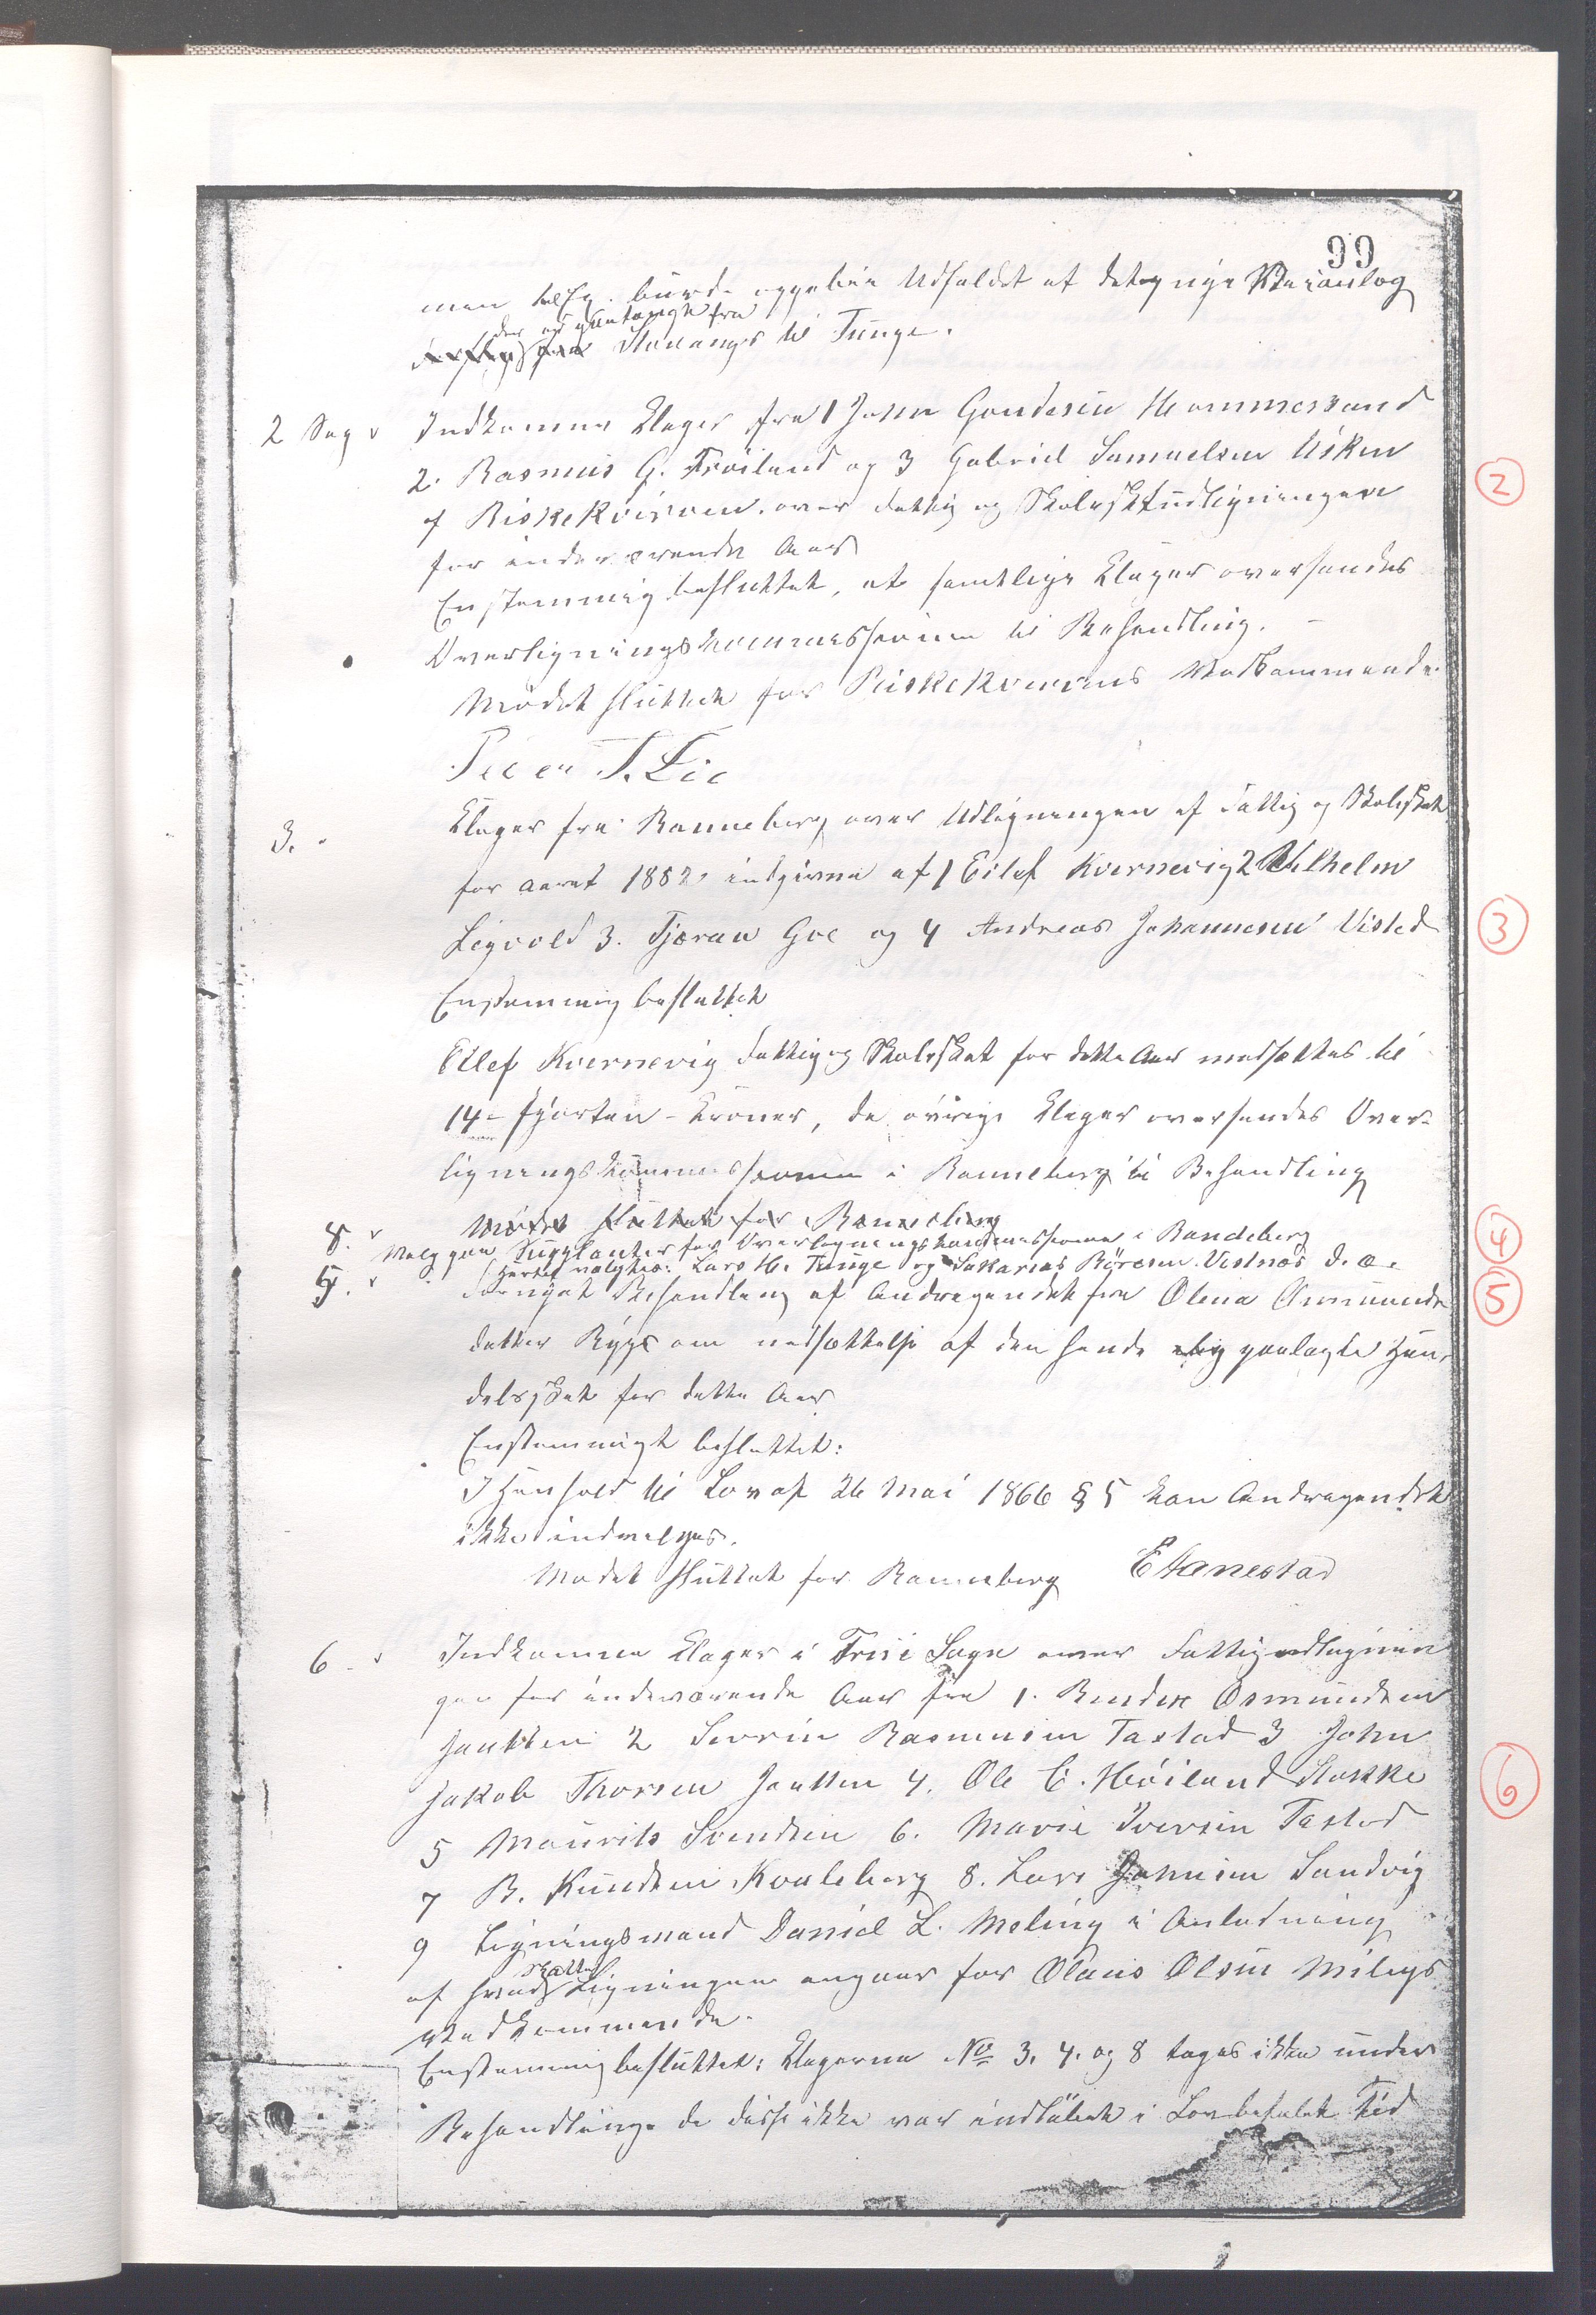 99
men burde Udfaldet af det nye Veianlæg
der er paatænkt fra
Stavanger til Tunge.
2 Sag Indkomne Klager fra 1 John Gundesen Hammersand
2. Rasmus G. Frøiland og 3 Gabriel Samuelsen Usken
af Riskekvisven over Fattig og Skoleskatudligningen
for indeværende Aar
Enstemmig besluttet, at samtlige Klager oversendes
Overligningskommissionen til Behandling.
Mødet sluttet for Vedkommende.
Peder T. Lie
3. Klager fra Ranneberg over Udligningen af Fattig og Skoleskat
for aaret 1882 indgivne af 1 Eilef Kvernevig 2 Vilhelm
Ligvold 3. Tjøran Goe og 4 Andreas Johannesen Visted
Enstemmig besluttet
Eilef Kvernevig Fattig og Skoleskat for dette Aar nedsættes til
14 - fjorten - Kroner, de øvrige Klager oversendes Over-
ligningskommissionen i Ranneberg til Behandling
Mødet sluttet for Ranneberg
Valg paa Suplanter for Overligningskommissionen i Randeberg
Hertil valgtes: Lars H. Tunge og Sakarias Børesen Vestnæs d. æ.
5. Fornyet Behandling af Andragendet fra Olena Osmunds
datter Bygs om nedsættelse af den hende paalagte Han-
delsskat for dette Aar
Enstemmigt besluttet:
I Henhold til Lov af 26 Mai 1866 § 5 kan Andragendet
ikke indvilges.
Mødet sluttet for Ranneberg E Hanestad
6 Indkomne Klager i Frue Sogn over Fattigudlignin
gen for indeværende Aar fra 1. Bendix Osmundsen
Jaatten 2 Sevrin Rasmusen Tastad 3 John
Jakob Thorsen Jaatten 4. Ole E. Høiland Stokke
5 Maurits Svendsen 6. Marie Iversen Tastad
7 B. Knudsen Kvaleberg 8. Lars Johnsen Sandvig
9 Ligningsmand Daniel L. Meling i Anledning
af hvad Skatteligningen angaar for Olaus Olsen Melings
Vedkommende.
Enstemmig besluttet: Klagerne No 3. 4. og 8 tages ikke under
Behandling da disse ikke var indløbet i Lovbefalet Tid
2
3
4
5
6